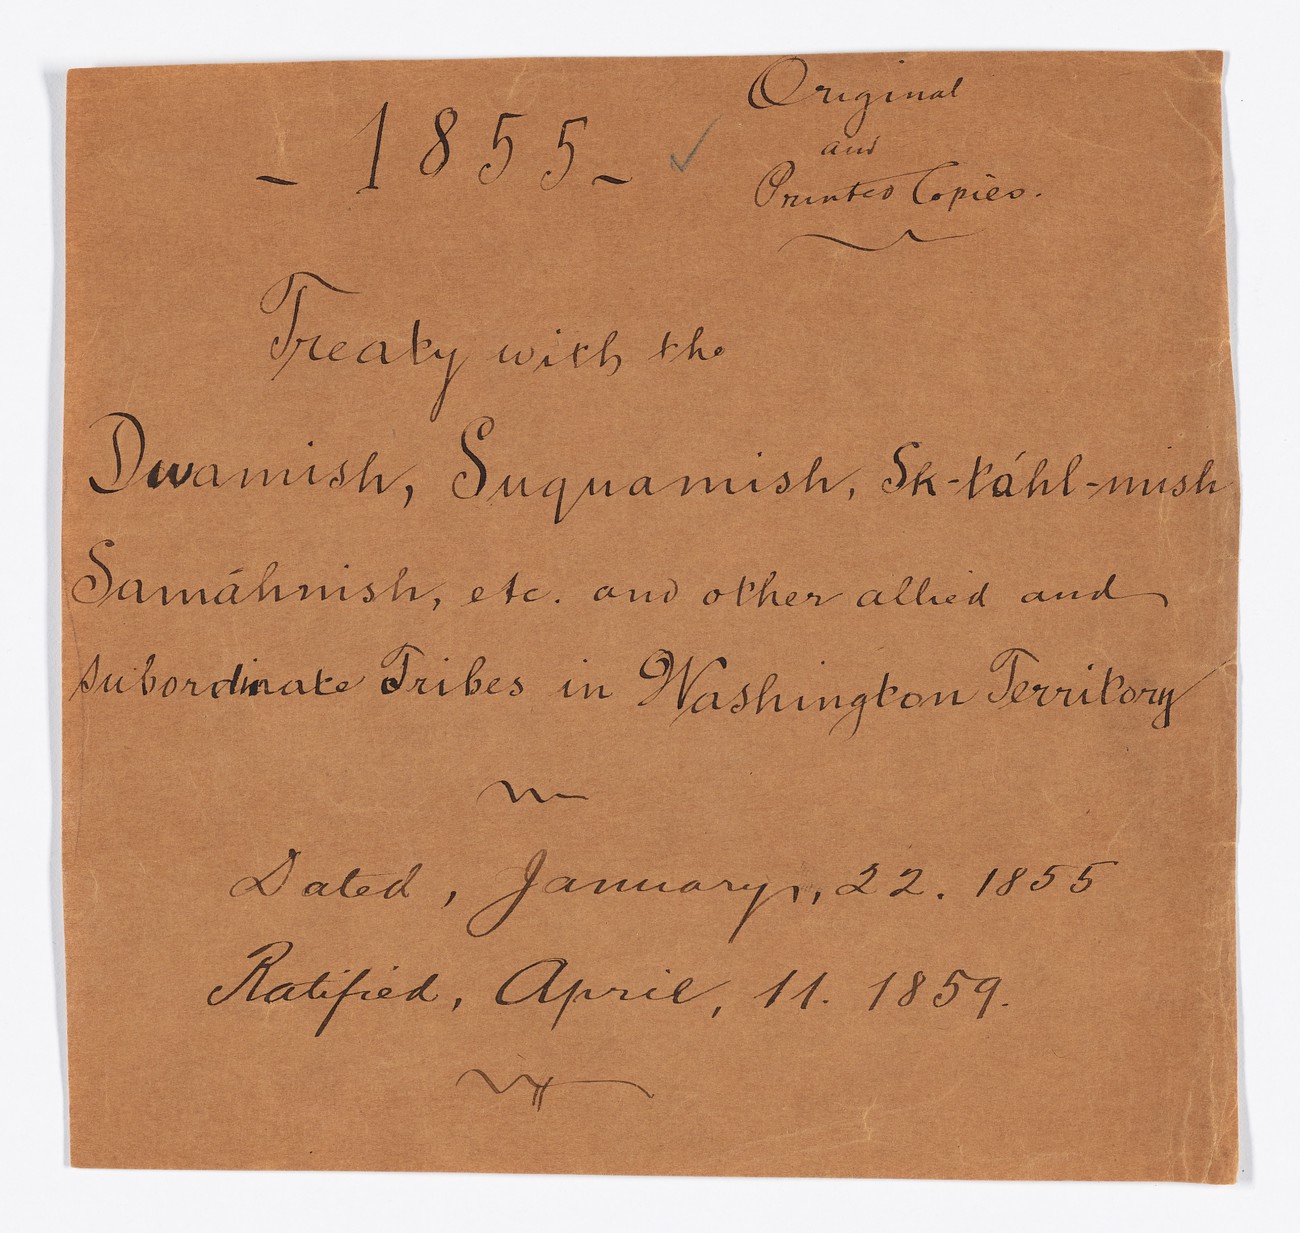 - 1855 -
Original
and
Printed Copies.
Treaty with the
Dwamish, Suquamish, Sk-táhl-mish
Samáhmish, etc. and other allied and
subordinate Tribes in Washington Territory
Dated, January, 22. 1855
Ratified, April, 11. 1859.